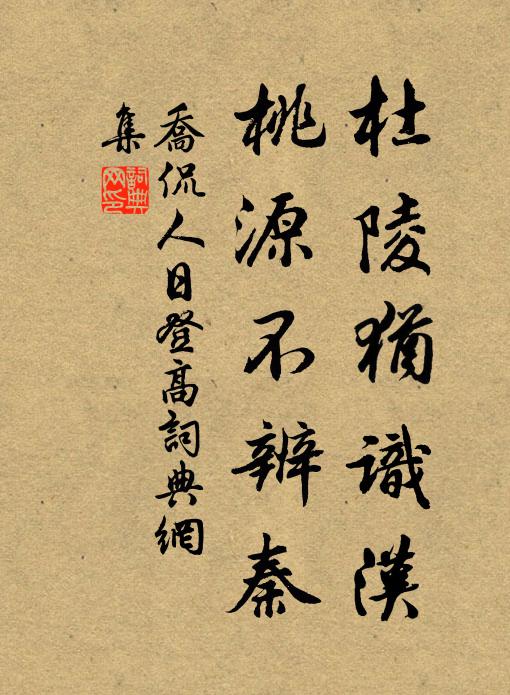 杜陵猶識漢
桃源不辨秦
喬侃人日登高詞典網
集
詞典
网印